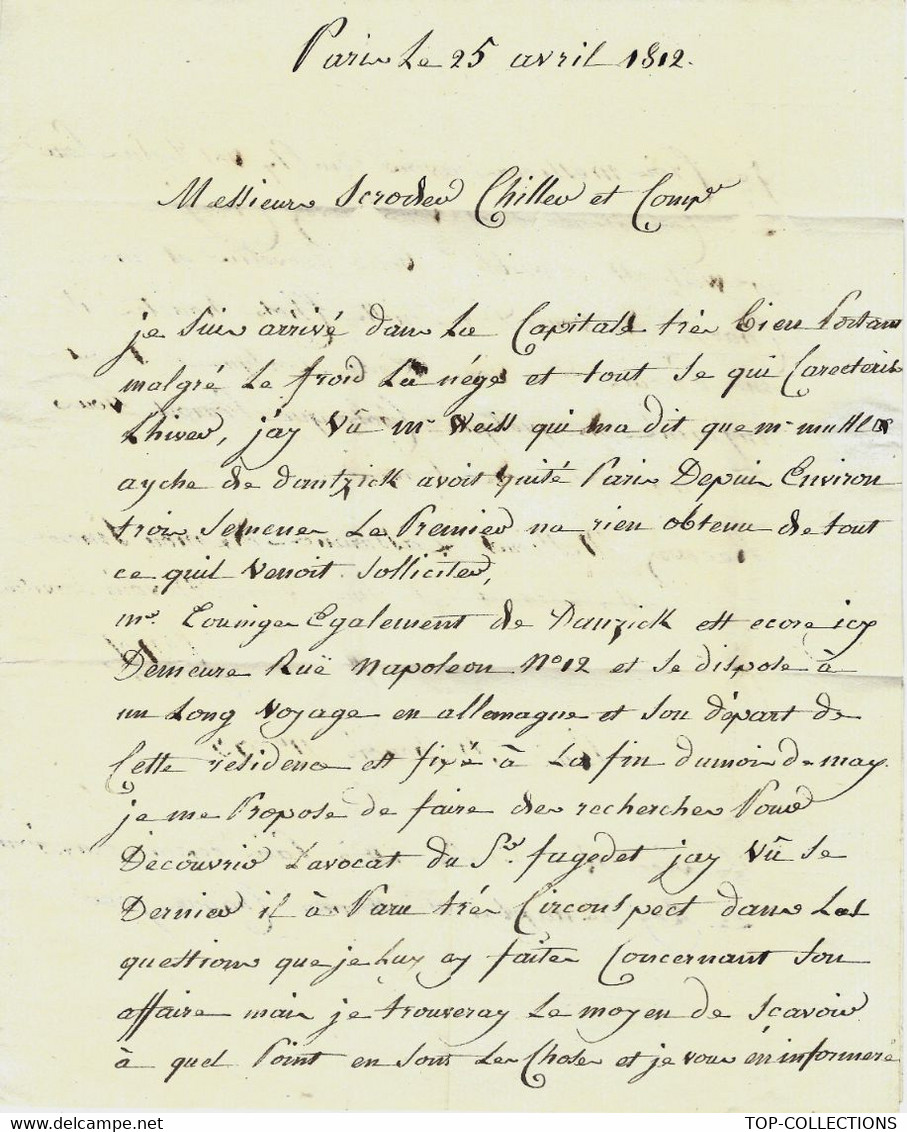 Paris Le 25 avril 1812.
Messieurs Scroder Chiller et Comp^e
je suis arrivé dans La Capitale très bien Portant
malgré Le froid La nége et tout se qui Carecteris
Lhiver, j'ay vû m^r Weill qui ma dit que m^r
ayche de dantzick avoit quité Paris Depuis Environ
trois Semenes Le Premier na rien obtenu de tout
ce quil venoit solliciter,
m^r. Egalement de Danzick est ecore icy
Demeure Ruë Napoleon N° 12 et se dispose à
un Long voyage en allemagne et son départ de
Cette résidence est fixé à La fin du mois de may.
je me Propose de faire des recherches Pour
Découvrir Lavocat du S^r. fagedet jay vû se
Dernier il à Paru très Circonspect dans Les
questions que je Luy ay faites Concernant son
affaire mais je trouveray Le moyen de scavoir
à quel Point en sont Les Choses et je vous en informeré
TOP-COLLECTIONS